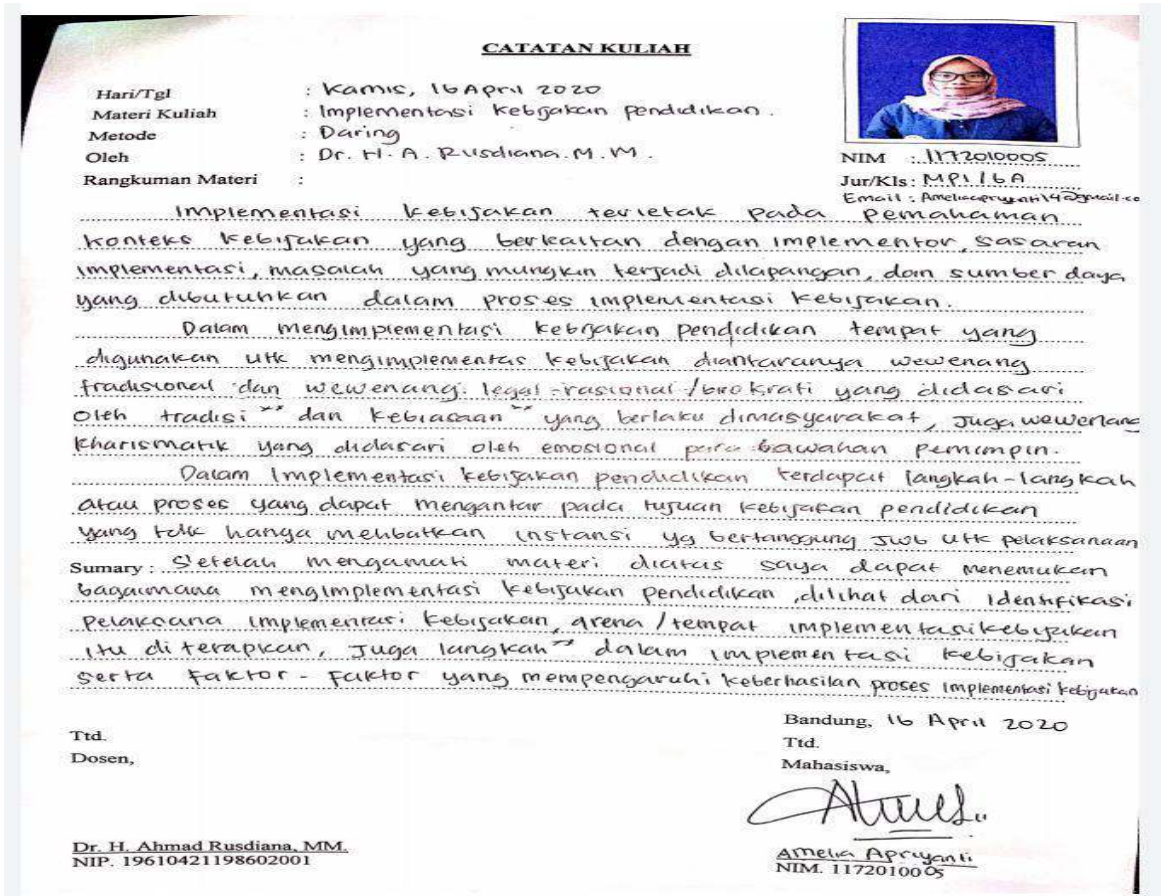 CATATAN KULIAH
Hari/Tgl : Kamis, 16 April 2020
Materi Kuliah : Implementasi Kebijakan pendidikan.
Metode : Daring
Oleh : Dr. H. A. Rusdiana. M. M.
NIM : 1172010005
Rangkuman Materi :
Jur/Kls : MPI / 6A
Email : Ameliaapriyanti14@gmail.co
Implementasi kebijakan terletak pada pemahaman
konteks kebijakan yang berkaitan dengan implementor, sasaran
implementasi, masalah yang mungkin terjadi dilapangan, dan sumber daya
yang dibutuhkan dalam proses implementasi kebijakan.
Dalam mengimplementasi kebijakan pendidikan tempat yang
digunakan utk mengimplementas kebijakan diantaranya wewenang
tradisional dan wewenang legal-rasional /birokrati yang didasari
oleh tradisi" dan kebiasaan" yang berlaku dimasyarakat, juga wewenang
kharismatik yang didasari oleh emosional para bawahan pemimpin.
Dalam Implementasi kebijakan pendidikan terdapat langkah-langkah
atau proses yang dapat mengantar pada tujuan kebijakan pendidikan
yang tdk hanya melibatkan instansi yg bertanggung jwb utk pelaksanaan
Sumary : Setelah mengamati materi diatas saya dapat menemukan
bagaimana mengimplementasi kebijakan pendidikan, dilihat dari identifikasi
pelaksana implementasi kebijakan, arena / tempat implementasi kebijakan
itu di terapkan, juga langkah" dalam implementasi kebijakan
serta faktor-faktor yang mempengaruhi keberhasilan proses implementasi kebijakan
Bandung, 16 April 2020
Ttd.
Dosen,
Ttd.
Mahasiswa,
Dr. H. Ahmad Rusdiana, MM.
NIP. 19610421198602001
Amelia Apriyanti
NIM. 1172010005